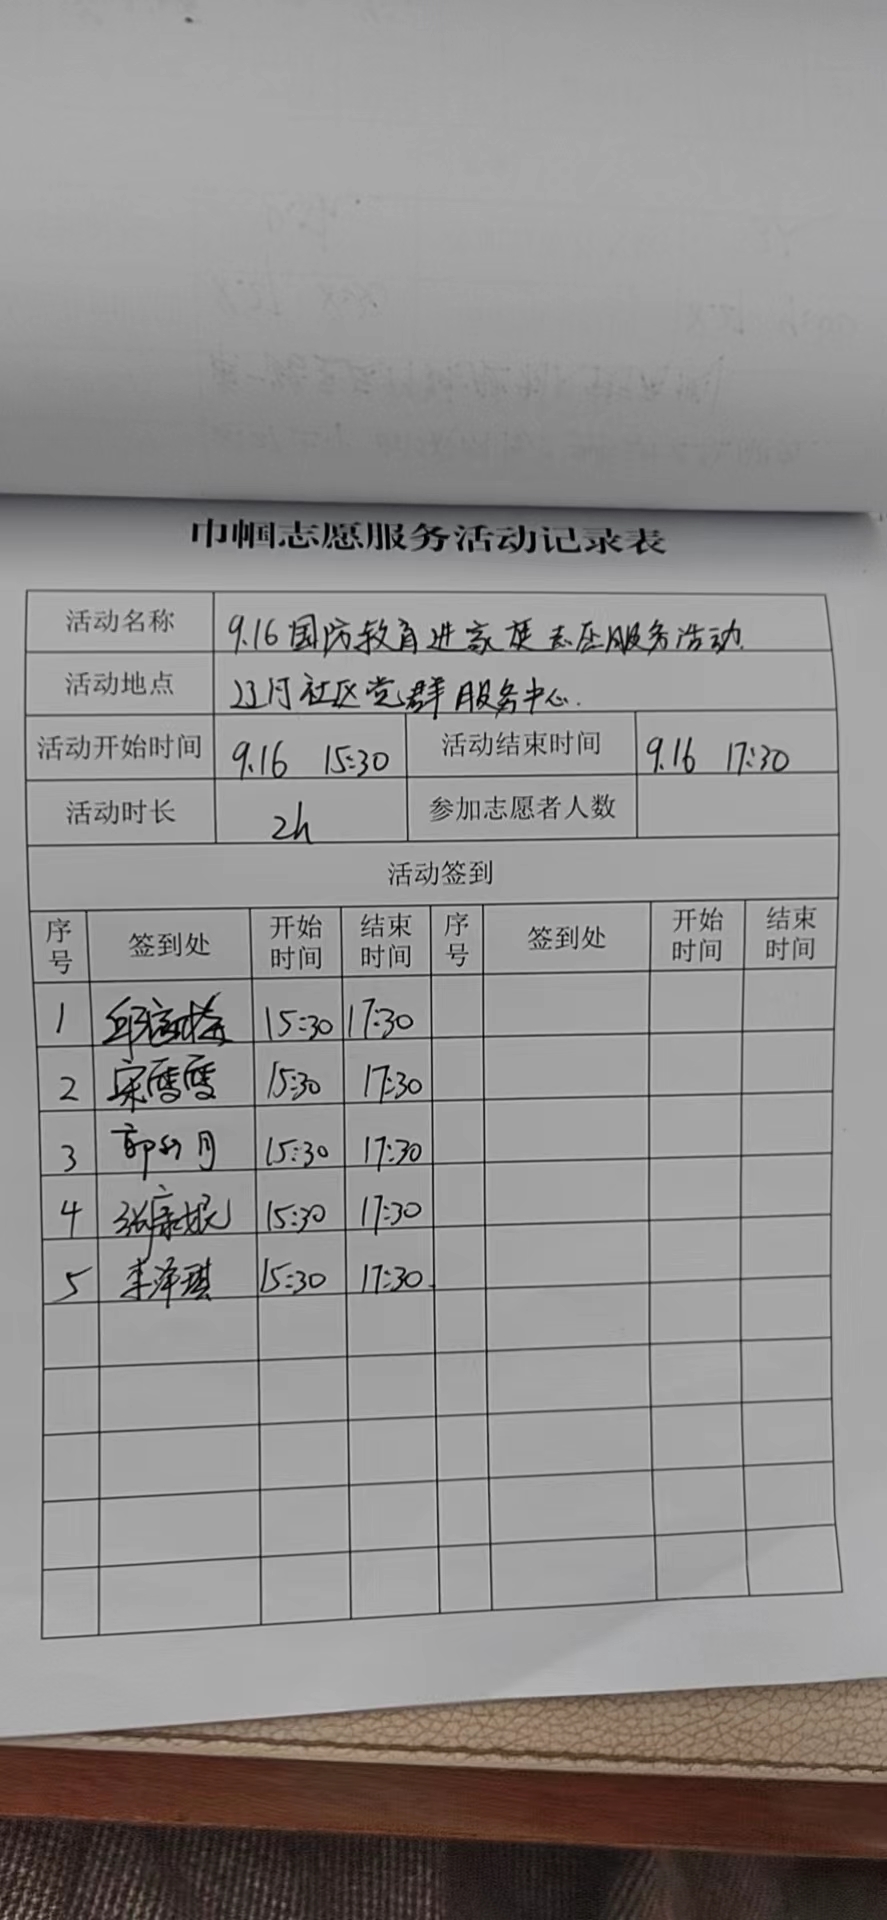 巾帼志愿服务活动记录表
活动名称 9.16国防教育进家庭志愿服务活动.
活动地点 社区党群服务中心.
活动开始时间 9.16 15:30 活动结束时间 9.16 17:30
活动时长 2h 参加志愿者人数
活动签到
序号 签到处 开始时间 结束时间 序号 签到处 开始时间 结束时间
1 15:30 17:30
2 宋霞霞 15:30 17:30
3 15:30 17:30
4 张康娘 15:30 17:30
5 李泽琪 15:30 17:30.